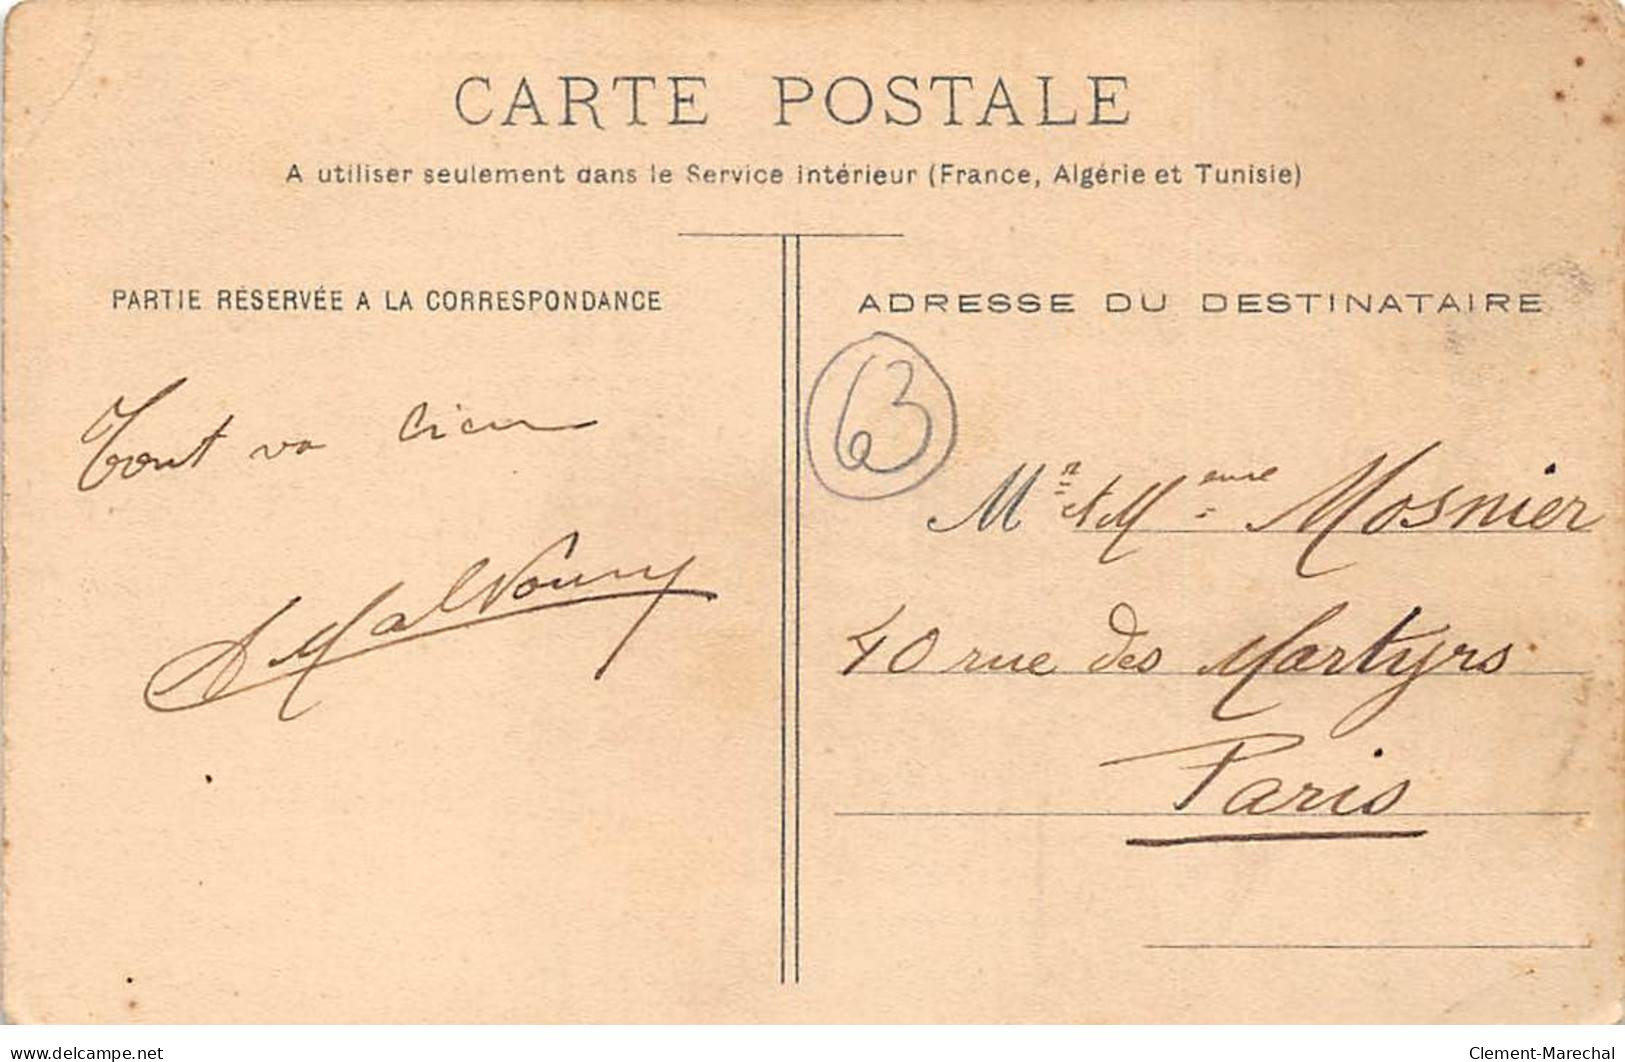 CARTE POSTALE
A utiliser seulement dans le Service intérieur (France, Algérie et Tunisie)
PARTIE RÉSERVÉE A LA CORRESPONDANCE
Tout va bien
ADRESSE DU DESTINATAIRE
63
Mr et Meme Mosnier
40 rue des Martyrs
Paris
www.delcampe.net
Clement-Marechal